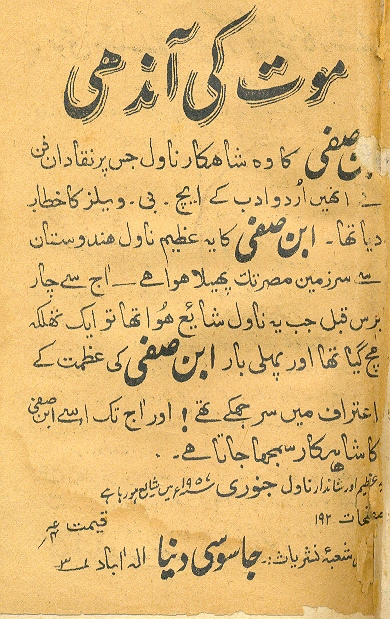 موت کی آندھی
ابن صفی کا وہ شاہکار ناول جس پر نقادان فن
نے انھیں اُردو ادب کے ایچ۔ بی۔ ویلز کا خطاب
دیا تھا۔ ابن صفی کا یہ عظیم ناول ہندوستان
سے سرزمین مصر تک پھیلا ہوا ہے۔ آج سے چار
برس قبل جب یہ ناول شایع ہُوا تھا تو ایک تھلکہ
مچ گیا تھا اور پہلی بار ابن صفی کی عظمت کے
اعتراف میں سر جھکے تھے! اور آج تک اسے ابن صفی
کا شاہکار سمجھا جاتا ہے۔
یہ عظیم اور شاندار ناول جنوری ۱۹۵۷ء میں شایع ہو رہا ہے
صفحات ۱۹۲ قیمت
شعبۂ نشریات:۔ جاسوسی دنیا الہ آباد ۳